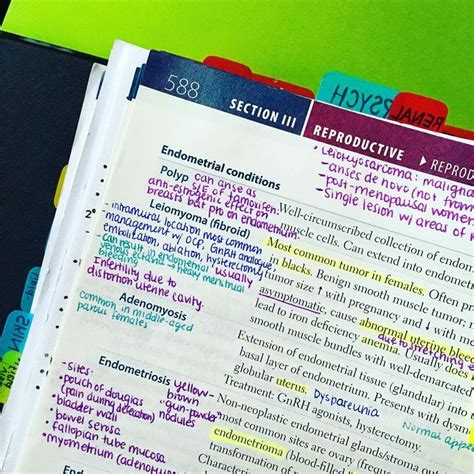 588
SECTION III
REPRODUCTIVE
REPROD
RENAL
PSYCH
• Leiomyosarcoma: maligna
- arises de novo (not from
- post-menopausal women
- single lesion w/ areas of
Endometrial conditions
Polyp
can arise as
S/E of tamoxifen:
anti-estrogenic effect on
breasts but pro on endometrium.
Well-circumscribed collection of endom
muscle cells. Can extend into endomet
Leiomyoma (fibroid)
- intramural location most common
- management w/ OCP, GnRH analogue,
embolization, ablation, hysterectomy
- can result in endometrial
venous ectasia → heavy menstrual
bleeding
usually
Infertility due to
distortion uterine cavity.
Most common tumor in females. Often p
in blacks. Benign smooth muscle tumor
tumor size ↑ with pregnancy and ↓ with
asymptomatic, cause abnormal uterine bleed
lead to iron deficiency anemia. Usually does
due to stretching
muscle bundles with well-demarcated
Adenomyosis
common in middle-aged
parous females
Extension of endometrial tissue (glandular) into
basal layer of endometrium.
globular uterus. Dyspareunia
Treatment: GnRH agonists, hysterectomy.
Normal appe
Endometriosis
yellow-
brown
"gun-powder
nodules
• Sites:
• pouch of douglas
(pain during defecation)
• bladder wall
• bowel serosa
• fallopian tube mucosa
• myometrium (adenomyo
Non-neoplastic endometrial glands/stroma
most common sites are ovary
endometrioma (blood-filled
Character
Treatment